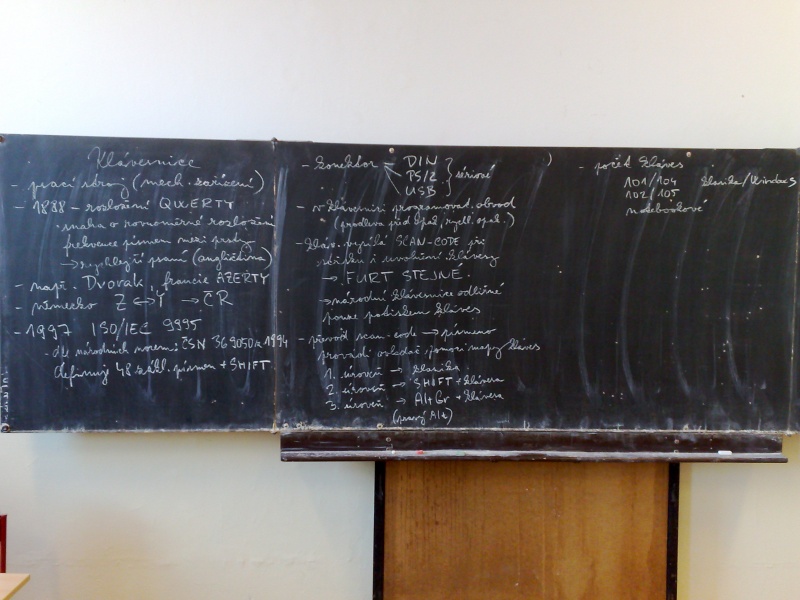 Klávesnice
- psací stroj (mech. zařízení)
- 1888 - rozložení QWERTY
snaha o rovnoměrné rozložení
frekvence písmen mezi prsty
→ rychlejší psaní (angličtina)
- např. Dvorak, francie AZERTY
- německo Z ↔ Y → ČR
- 1997 ISO/IEC 9995
- dle národních norem: ČSN 369050 z 1994
definuj 48 zákl. písmen + SHIFT
- konektor = DIN
PS/2
USB
sériové
- v klávesnici programovat. obvod
(prodleva před opak., rychl. opak.)
- kláv. vysílá SCAN-CODE při
stisku i uvolnění klávesy
→ FURT STEJNÉ
→ národní klávesnice odlišné
pouze potiskem kláves
- převod scan-code → písmeno
provádí ovladač pomocí mapy kláves
1. úroveň → klasika
2. úroveň → SHIFT + klávesa
3. úroveň → AltGr + klávesa
(pravý Alt)
- počet kláves
101/104 klasika/Windows
102/105
notebookové